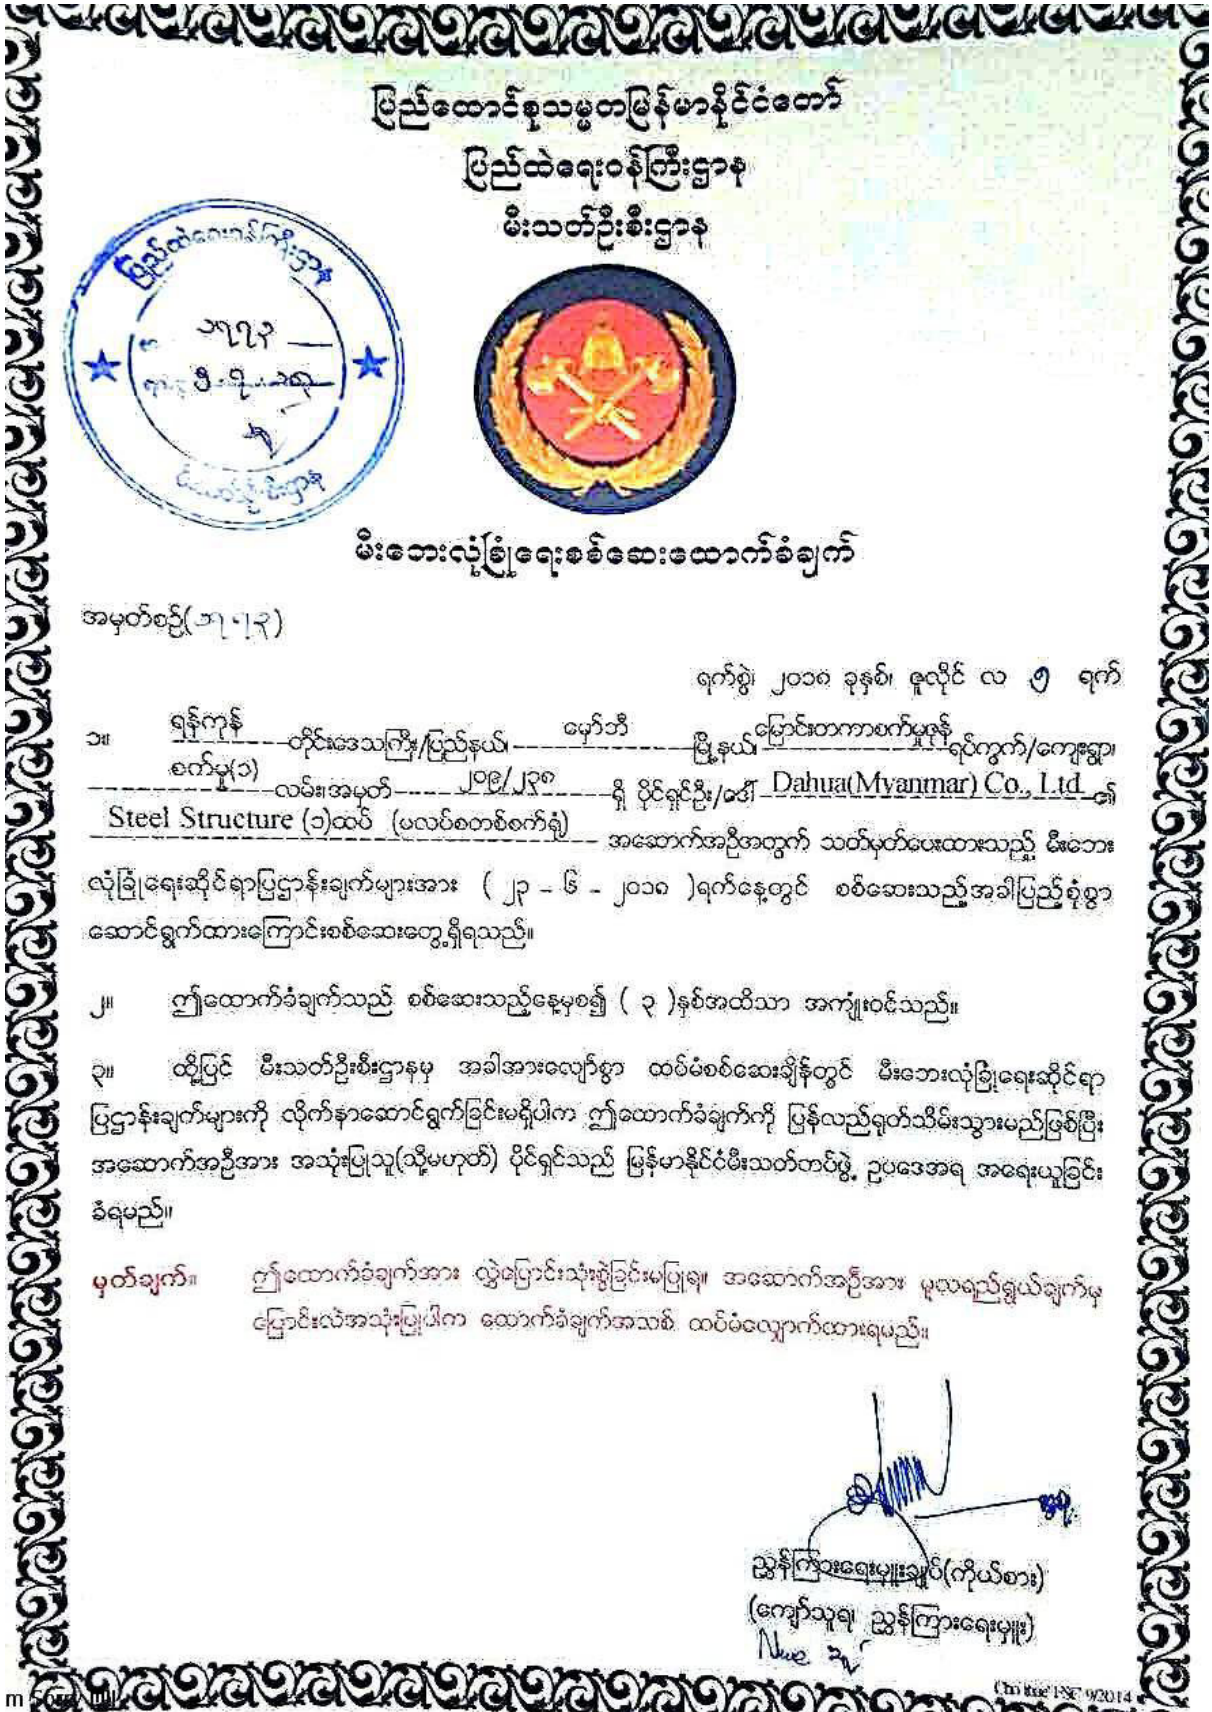 ပြည်ထောင်စုသမ္မတမြန်မာနိုင်ငံတော်
ပြည်ထဲရေးဝန်ကြီးဌာန
မီးသတ်ဦးစီးဌာန
ပြည်ထဲရေးဝန်ကြီးဌာန
၁၇၇၃
မီးသတ်ဦးစီးဌာန
မီးဘေးလုံခြုံရေးစစ်ဆေးထောက်ခံချက်
အမှတ်စဉ်(၁၇၇၃)
ရက်စွဲ၊ ၂၀၁၈ ခုနှစ်၊ ဇူလိုင် လ ၅ ရက်
၁။ ရန်ကုန် တိုင်းဒေသကြီး/ပြည်နယ်၊ မှော်ဘီ မြို့နယ်၊ မြောင်းတကာစက်မှုဇုန် ရပ်ကွက်/ကျေးရွာ၊
စက်မှု(၁) လမ်း၊အမှတ် ၂၀၉/၂၃၈ ရှိ ပိုင်ရှင်ဦး/ဒေါ် Dahua(Myanmar) Co., Ltd ၏
Steel Structure (၁)ထပ် (ပလပ်စတစ်စက်ရုံ) အဆောက်အဦအတွက် သတ်မှတ်ပေးထားသည့် မီးဘေး
လုံခြုံရေးဆိုင်ရာပြဋ္ဌာန်းချက်များအား ( ၂၃ - ၆ - ၂၀၁၈ )ရက်နေ့တွင် စစ်ဆေးသည့်အခါပြည့်စုံစွာ
ဆောင်ရွက်ထားကြောင်းစစ်ဆေးတွေ့ရှိရသည်။
၂။ ဤထောက်ခံချက်သည် စစ်ဆေးသည့်နေ့မှစ၍ ( ၃ )နှစ်အထိသာ အကျုံးဝင်သည်။
၃။ ထို့ပြင် မီးသတ်ဦးစီးဌာနမှ အခါအားလျော်စွာ ထပ်မံစစ်ဆေးချိန်တွင် မီးဘေးလုံခြုံရေးဆိုင်ရာ
ပြဋ္ဌာန်းချက်များကို လိုက်နာဆောင်ရွက်ခြင်းမရှိပါက ဤထောက်ခံချက်ကို ပြန်လည်ရုတ်သိမ်းသွားမည်ဖြစ်ပြီး
အဆောက်အဦအား အသုံးပြုသူ(သို့မဟုတ်) ပိုင်ရှင်သည် မြန်မာနိုင်ငံမီးသတ်တပ်ဖွဲ့ ဥပဒေအရ အရေးယူခြင်း
ခံရမည်။
မှတ်ချက်။ ဤထောက်ခံချက်အား လွှဲပြောင်းသုံးစွဲခြင်းမပြုရ။ အဆောက်အဦအား မူလရည်ရွယ်ချက်မှ
ပြောင်းလဲအသုံးပြုပါက ထောက်ခံချက်အသစ် ထပ်မံလျှောက်ထားရမည်။
ညွှန်ကြားရေးမှူးချုပ်(ကိုယ်စား)
(ကျော်သူရ၊ ညွှန်ကြားရေးမှူး)